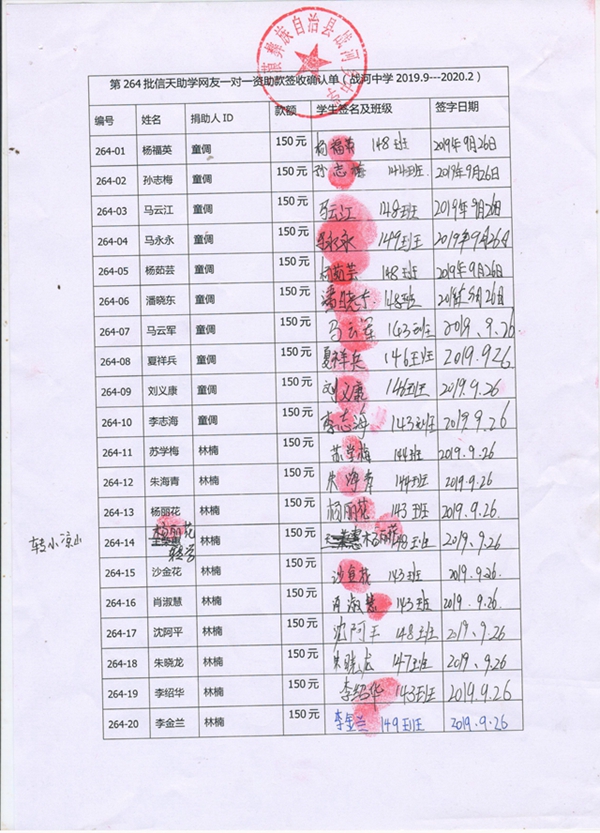 彝族自治县战河中学
第 264 批信天助学网友一对一资助款签收确认单（战河中学 2019.9---2020.2）
编号 姓名 捐助人 ID 款额 学生签名及班级 签字日期
264-01 杨福英 童倜 150 元 杨福英 148班 2019年9月26日
264-02 孙志梅 童倜 150 元 孙志梅 144班 2019年9月26日
264-03 马云江 童倜 150 元 马云江 148班 2019年9月26日
264-04 马永永 童倜 150 元 马永永 149班 2019年9月26日
264-05 杨茹芸 童倜 150 元 杨茹芸 148班 2019年9月26日
264-06 潘晓东 童倜 150 元 潘晓东 148班 2019年9月26日
264-07 马云军 童倜 150 元 马云军 143班 2019、9.26
264-08 夏祥兵 童倜 150 元 夏祥兵 146班 2019.926
264-09 刘义康 童倜 150 元 刘义康 146班 2019.9.26
264-10 李志海 童倜 150 元 李志海 143班 2019.9.26
264-11 苏学梅 林楠 150 元 苏学梅 144班 2019.9.26
264-12 朱海青 林楠 150 元 朱海青 144班 2019.9.26
264-13 杨丽花 林楠 150 元 杨丽花 143班 2019.9.26
转小凉山 264-14 杨丽花 转学 林楠 150 元 杨丽花 143班 2019.9.26
264-15 沙金花 林楠 150 元 沙金花 143班 2019.9.26.
264-16 肖淑慧 林楠 150 元 肖淑慧 143班 2019.9.26.
264-17 沈阿平 林楠 150 元 沈阿平 148班 2019.9.26
264-18 朱晓龙 林楠 150 元 朱晓龙 147班 2019、9.26
264-19 李绍华 林楠 150 元 李绍华 143班 2019.9.26
264-20 李金兰 林楠 150 元 李金兰 149班 2019.9.26